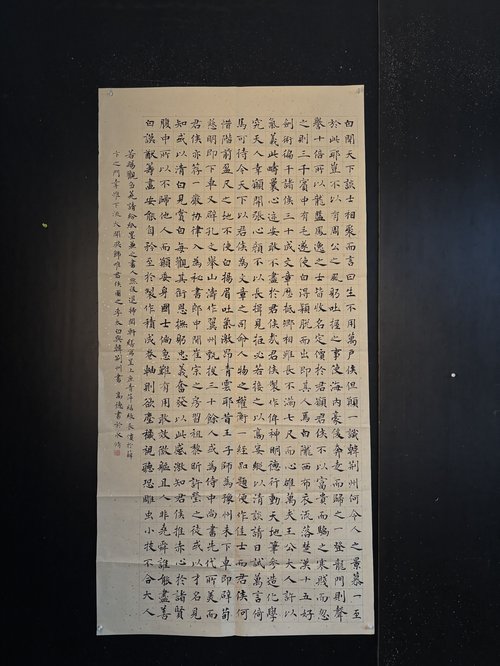 白聞天下談士相聚而言曰生不用萬戶侯但願一識韓荊州何令人之景慕一至
於此耶豈不以有周公之風躬吐握之事使海內豪俊奔走而歸之一登龍門則聲
譽十倍所以龍盤鳳逸之士皆收名定價於君侯願君侯不以富貴而驕之寒賤而忽
之則三千賓中有毛遂使白得穎脫而出即其人焉白隴西布衣流落楚漢十五好
劍術徧干諸侯三十成文章歷抵卿相雖長不滿七尺而心雄萬夫王公大人許以
氣義此疇曩心迹安敢不盡於君侯哉君侯製作侔神明德行動天地筆參造化學
究天人幸願開張心顏不以長揖見拒必若接之以高宴縱以清談請日試萬言倚
馬可待今天下以君侯為文章之司命人物之權衡一經品題便作佳士而君侯何
惜階前盈尺之地不使白揚眉吐氣激昂青雲耶昔王子師為豫州未下車即辟荀
慈明即下車又辟孔文舉山濤作冀州甄拔三十餘人或為侍中尚書先代所美而
君侯亦荐一嚴協律入為秘書郎中間崔宗之房習祖黎昕許瑩之徒或以才名見
知或以清白見賞白每觀其銜恩撫躬忠義奮發以此感激知君侯推赤心於諸賢
腹中所以不歸他人而願委身國士倘急難有用敢效微軀且人非堯舜誰能盡善
白謨猷籌畫安能自矜至於製作積成卷軸則欲塵穢視聽恐雕虫小技不合大人
若賜觀芻蕘請給紙墨兼之書人然後退掃閑軒繕寫呈上庶青萍結綠長價於薛
卞之門幸推下流大開獎飾唯君侯圖之李太白與韓荊州書高德書於